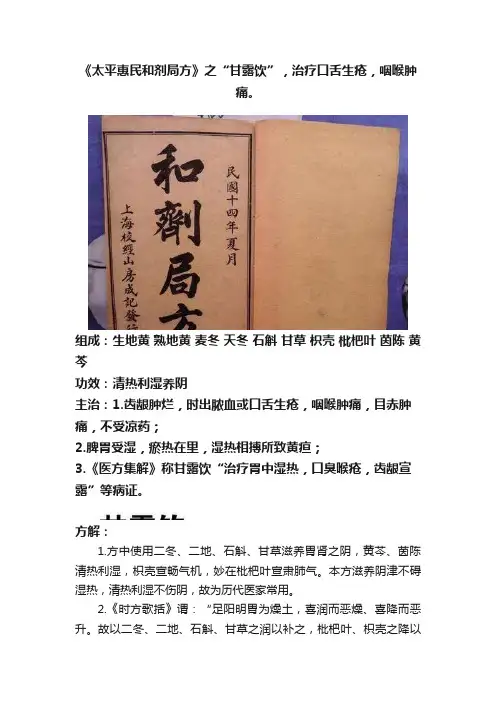 《太平惠民和剂局方》之“甘露饮”，治疗口舌生疮，咽喉肿
痛。
民國十四年夏月
和劑局方
上海校經山房成記發行
组成：生地黄 熟地黄 麦冬 天冬 石斛 甘草 枳壳 枇杷叶 茵陈 黄
芩
功效：清热利湿养阴
主治：1.齿龈肿烂，时出脓血或口舌生疮，咽喉肿痛，目赤肿
痛，不受凉药；
2.脾胃受湿，瘀热在里，湿热相搏所致黄疸；
3.《医方集解》称甘露饮“治疗胃中湿热，口臭喉疮，齿龈宣
露”等病证。
方解：
1.方中使用二冬、二地、石斛、甘草滋养胃肾之阴，黄芩、茵陈
清热利湿，枳壳宣畅气机，妙在枇杷叶宣肃肺气。本方滋养阴津不碍
湿热，清热利湿不伤阴，故为历代医家常用。
2.《时方歌括》谓：“足阳明胃为燥土，喜润而恶燥、喜降而恶
升。故以二冬、二地、石斛、甘草之润以补之，枇杷叶、枳壳之降以